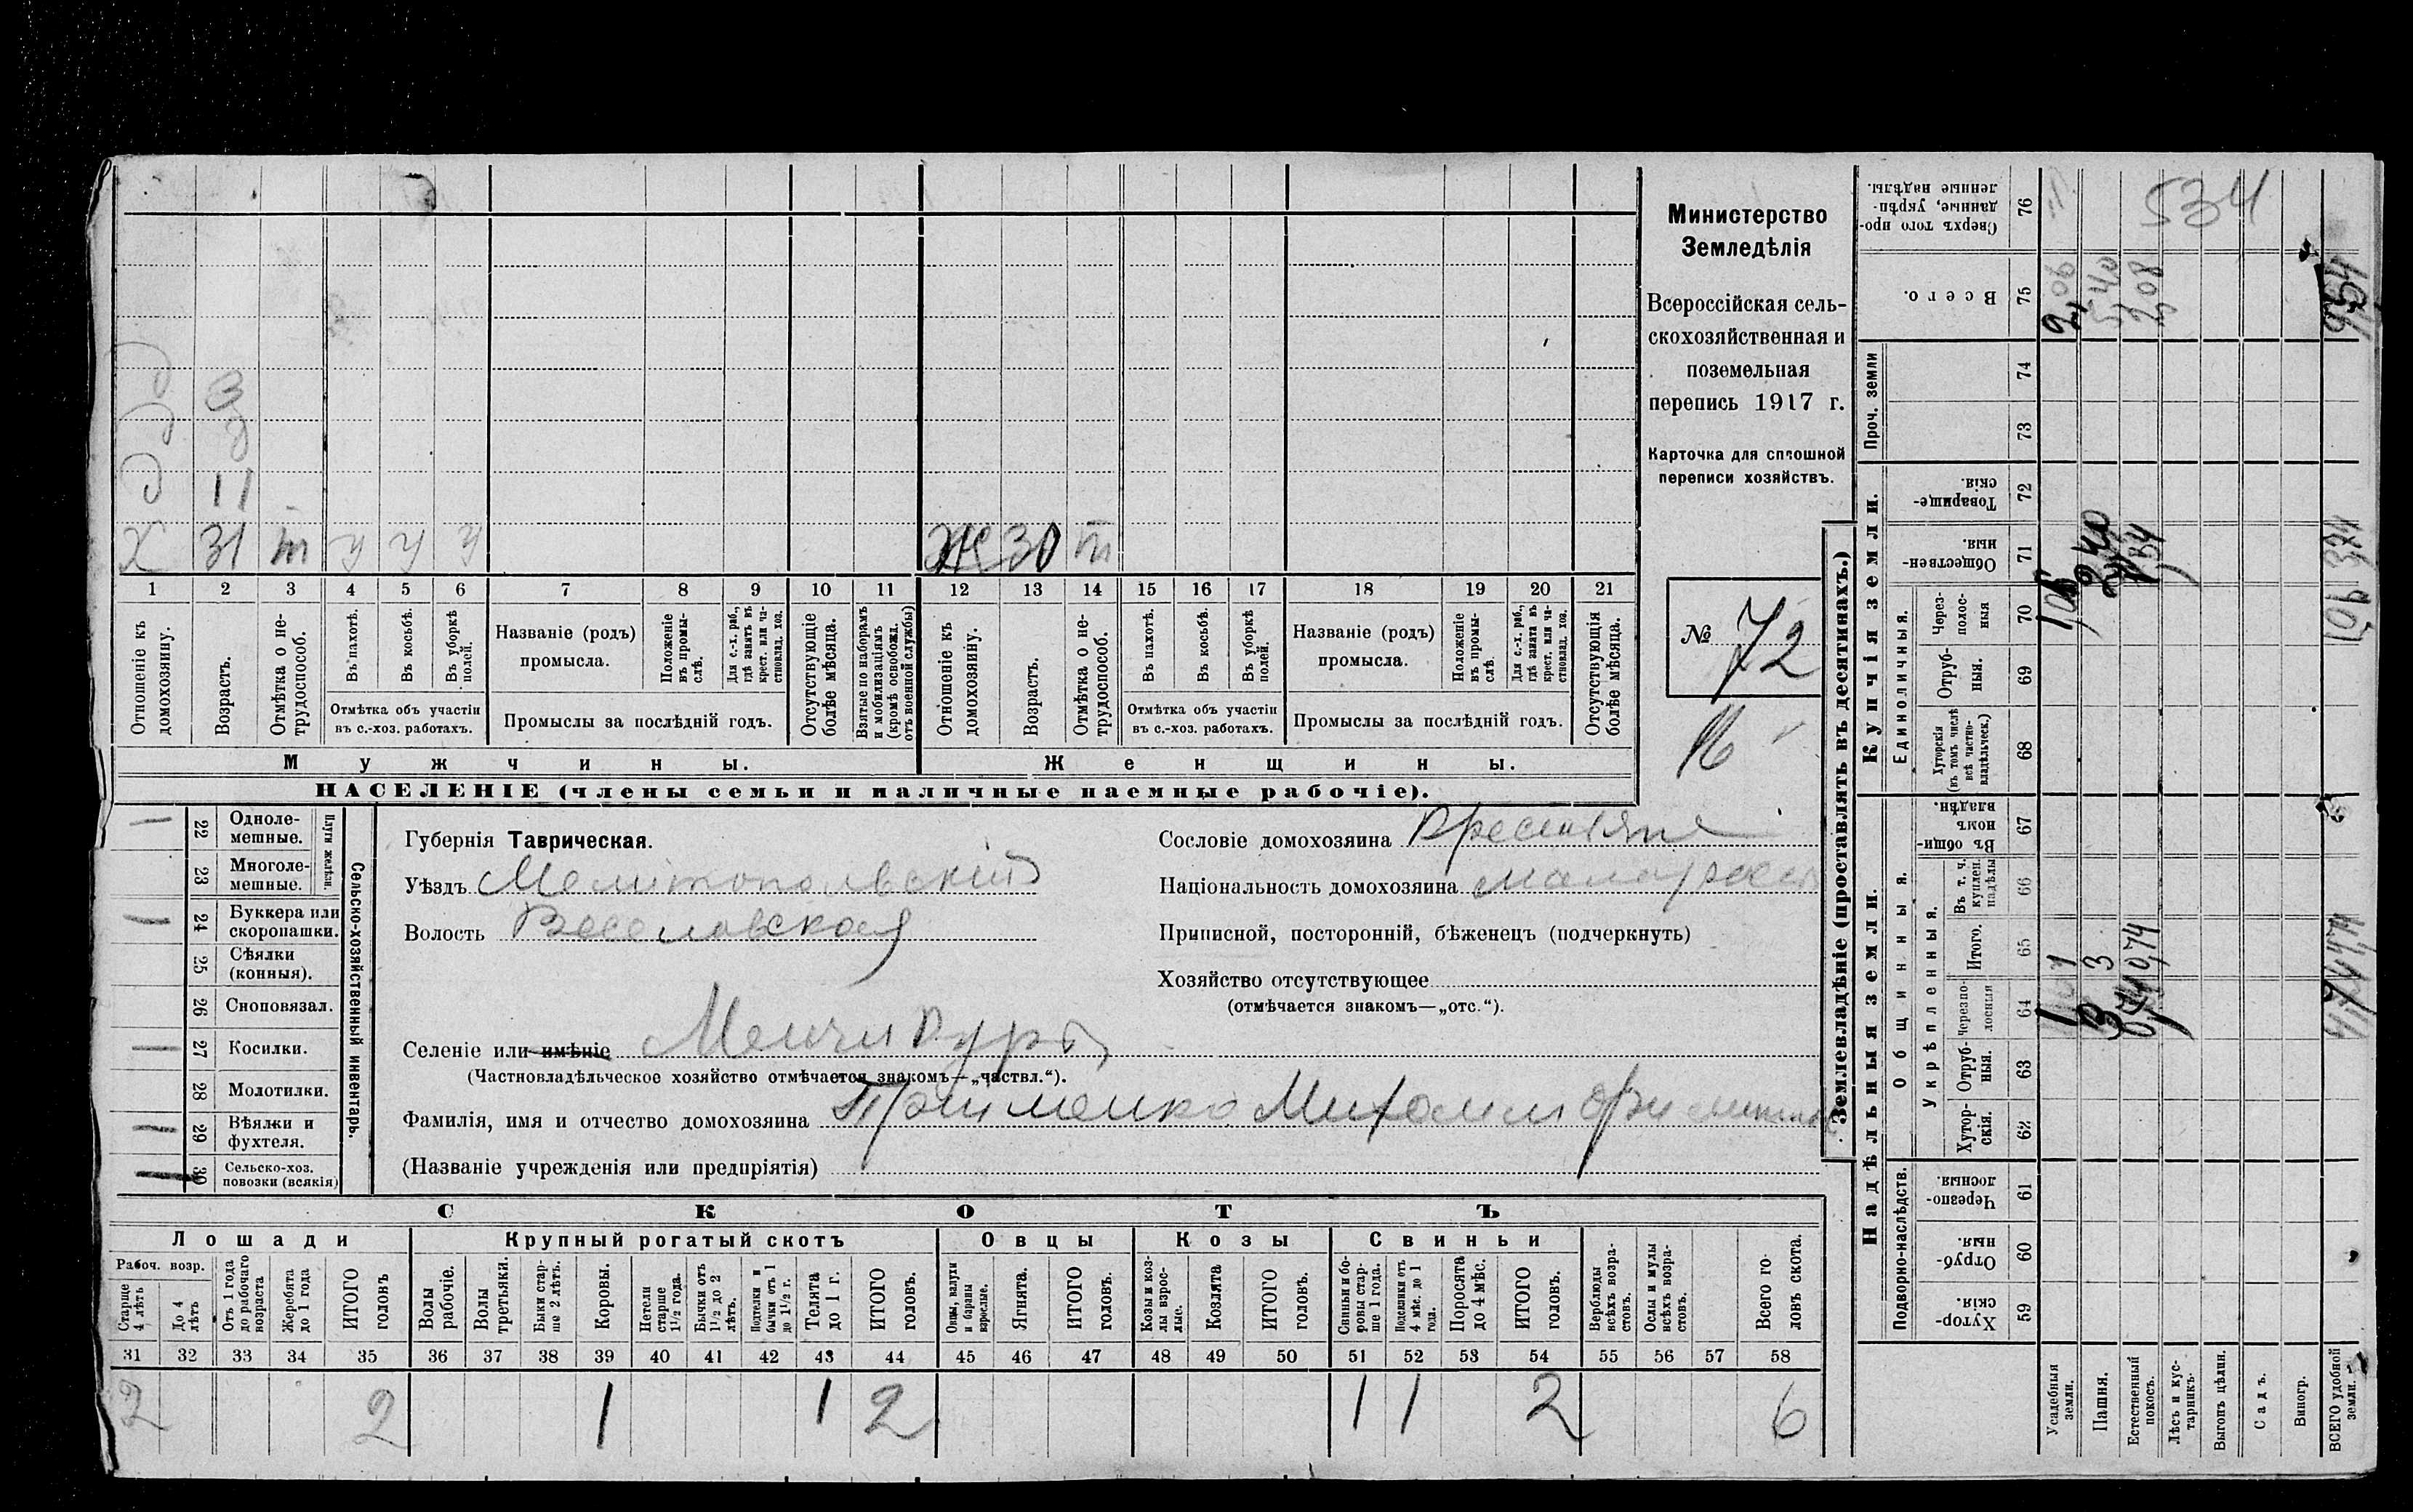 Министерство
Земледѣлія
Всероссійская сель-
скохозяйственная и
поземельная
перепись 1917 г.
Карточка для сплошной
переписи хозяйствъ.
№ 72
16
Х 31 т у у у
Д 11
Ж 30 т
1 2 3 4 5 6 7 8 9 10 11 12 13 14 15 16 17 18 19 20 21
Отношеніе къ домохозяину.
Возрастъ.
Отмѣтка о не-трудоспособ.
Въ пахотѣ.
Въ косьбѣ.
Въ уборкѣ полей.
Отмѣтка объ участіи
въ с.-хоз. работахъ.
Названіе (родъ)
промысла.
Положеніе въ промы-слѣ.
Для с.-х. раб., гдѣ занятъ въ крест. или ча-стновлад. хоз.
Промыслы за послѣдній годъ.
Отсутствующіе болѣе мѣсяца.
Взятые по наборамъ и мобилизаціямъ (кромѣ освобожд. отъ военной службы)
Отношеніе къ домохозяину.
Возрастъ.
Отмѣтка о не-трудоспособ.
Въ пахотѣ.
Въ косьбѣ.
Въ уборкѣ полей.
Отмѣтка объ участіи
въ с.-хоз. работахъ.
Названіе (родъ)
промысла.
Положеніе въ промы-слѣ.
Для с.-х. раб., гдѣ заняты въ крест. или ча-стновлад. хоз.
Промыслы за послѣдній годъ.
Отсутствующія болѣе мѣсяца.
Мужчины.
Женщины.
НАСЕЛЕНІЕ (члены семьи и наличные наемные рабочіе).
Сельско-хозяйственный инвентарь.
Плуги желѣзн.
22 Одноле-мешные.
23 Многоле-мешные.
24 Буккера или скоропашки.
25 Сѣялки (конныя).
26 Сноповязал.
27 Косилки.
28 Молотилки.
29 Вѣялки и фухтеля.
30 Сельско-хоз. повозки (всякія)
Губернія Таврическая.
Уѣздъ Мелитопольскій
Волость Веселовская
Сословіе домохозяина
Національность домохозяина
Приписной, посторонній, бѣженецъ (подчеркнуть)
Хозяйство отсутствующее
(отмѣчается знакомъ—„отс.“).
Селеніе или имѣніе Менчикуръ
(Частновладѣльческое хозяйство отмѣчается знакомъ—„частвл.“).
Фамилія, имя и отчество домохозяина Михаилъ
(Названіе учрежденія или предпріятія)
СКОТЪ
Лошади
Крупный рогатый скотъ
Овцы
Козы
Свиньи
Рабоч. возр.
Старше 4 лѣтъ
До 4 лѣтъ
Отъ 1 года до рабочаго возраста
Жеребята до 1 года
ИТОГО головъ
Волы рабочіе.
Волы третьяки.
Быки стар-ше 2 лѣтъ.
Коровы.
Нетели старше 1½ года.
Бычки отъ 1½ до 2 лѣтъ.
Подтелки и бычки отъ 1 до 1½ г.
Телята до 1 г.
ИТОГО головъ.
Овцы, валухи и бараны взрослые.
Ягнята.
ИТОГО головъ.
Козы и коз-лы взрос-лые.
Козлята
ИТОГО головъ.
Свиньи и бо-ровы стар-ше 1 года.
Подсвинки отъ 4 мѣс. до 1 года.
Поросята до 4 мѣс.
ИТОГО головъ.
Верблюды всѣхъ возра-стовъ.
Ослы и мулы всѣхъ возра-стовъ.
Всего го-ловъ скота.
31 32 33 34 35 36 37 38 39 40 41 42 43 44 45 46 47 48 49 50 51 52 53 54 55 56 57 58
2 2 1 1 2 1 1 2 6
Землевладѣніе (проставлять въ десятинахъ.)
Надѣльныя земли.
Купчія земли.
Проч. земли
Подворно-наслѣдств.
Общинныя.
Укрѣпленныя.
Единоличныя.
Хутор-скія. 59
Отруб-ныя. 60
Черезпо-лосныя. 61
Хутор-скія. 62
Отруб-ныя. 63
Черезпо-лосныя 64
Итого. 65
Въ т. ч. куплен. надѣлы 66
Въ общи-номъ владѣн. 67
Хуторскія (въ томъ числѣ всѣ частно-владѣльческ.) 68
Отруб-ныя. 69
Через-полос-ныя 70
Обществен-ныя. 71
Товарище-скія. 72
73
74
Всего. 75
Сверхъ того про-данные, укрѣп-ленные надѣлы. 76
534
Усадебныя земли. 1 1 1,06 2,06
Пашня. 3 3 2,40 5,40
Естественный покосъ. 0,74 0,74
Лѣсъ и кус-тарникъ.
Выгонъ цѣлин.
Садъ.
Виногр.
ВСЕГО удобной земли. 4,74